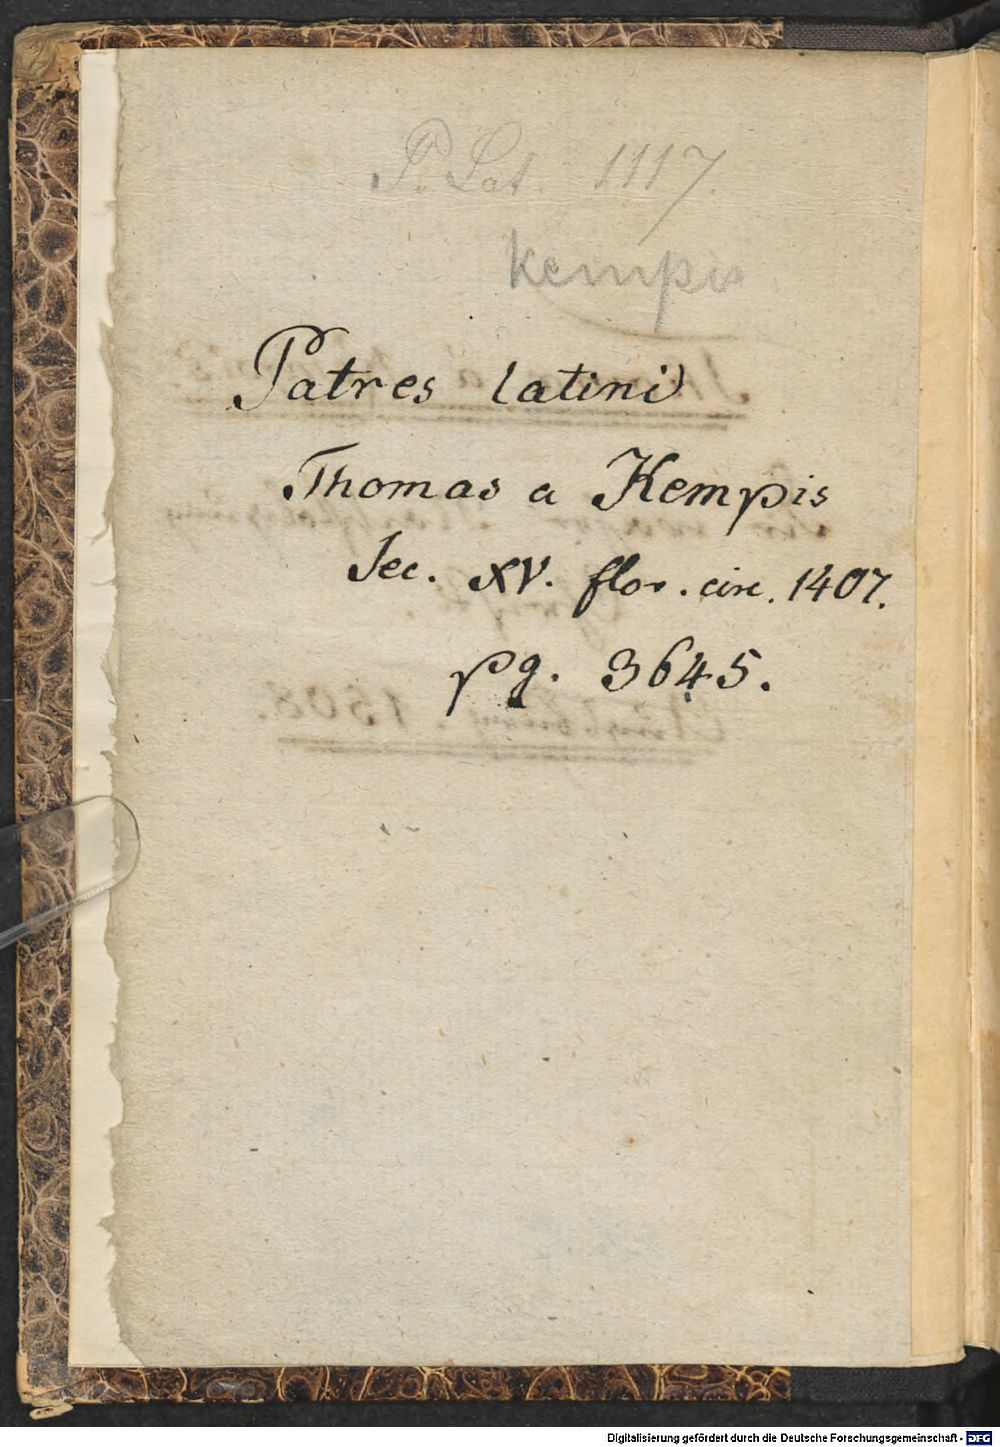 P. Lat. 1117.
Kempis
Patres latini
Thomas a Kempis
Sec. XV. flor. circ. 1407.
pg. 3645.
1508.
Digitalisierung gefördert durch die Deutsche Forschungsgemeinschaft - DFG